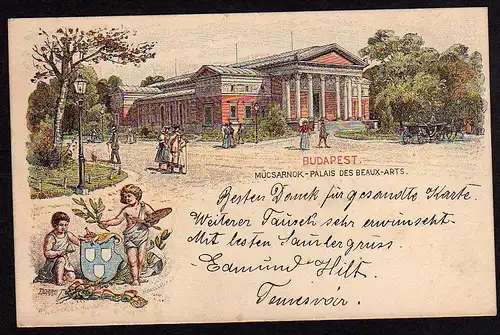 BUDAPEST.
MŰCSARNOK-PALAIS DES BEAUX-ARTS.
Besten Danck für gesandte Karte.
Weiterer Tausch sehr erwünscht.
Mit besten Samlergruss.
Edmund Hilt.
Temesvár.